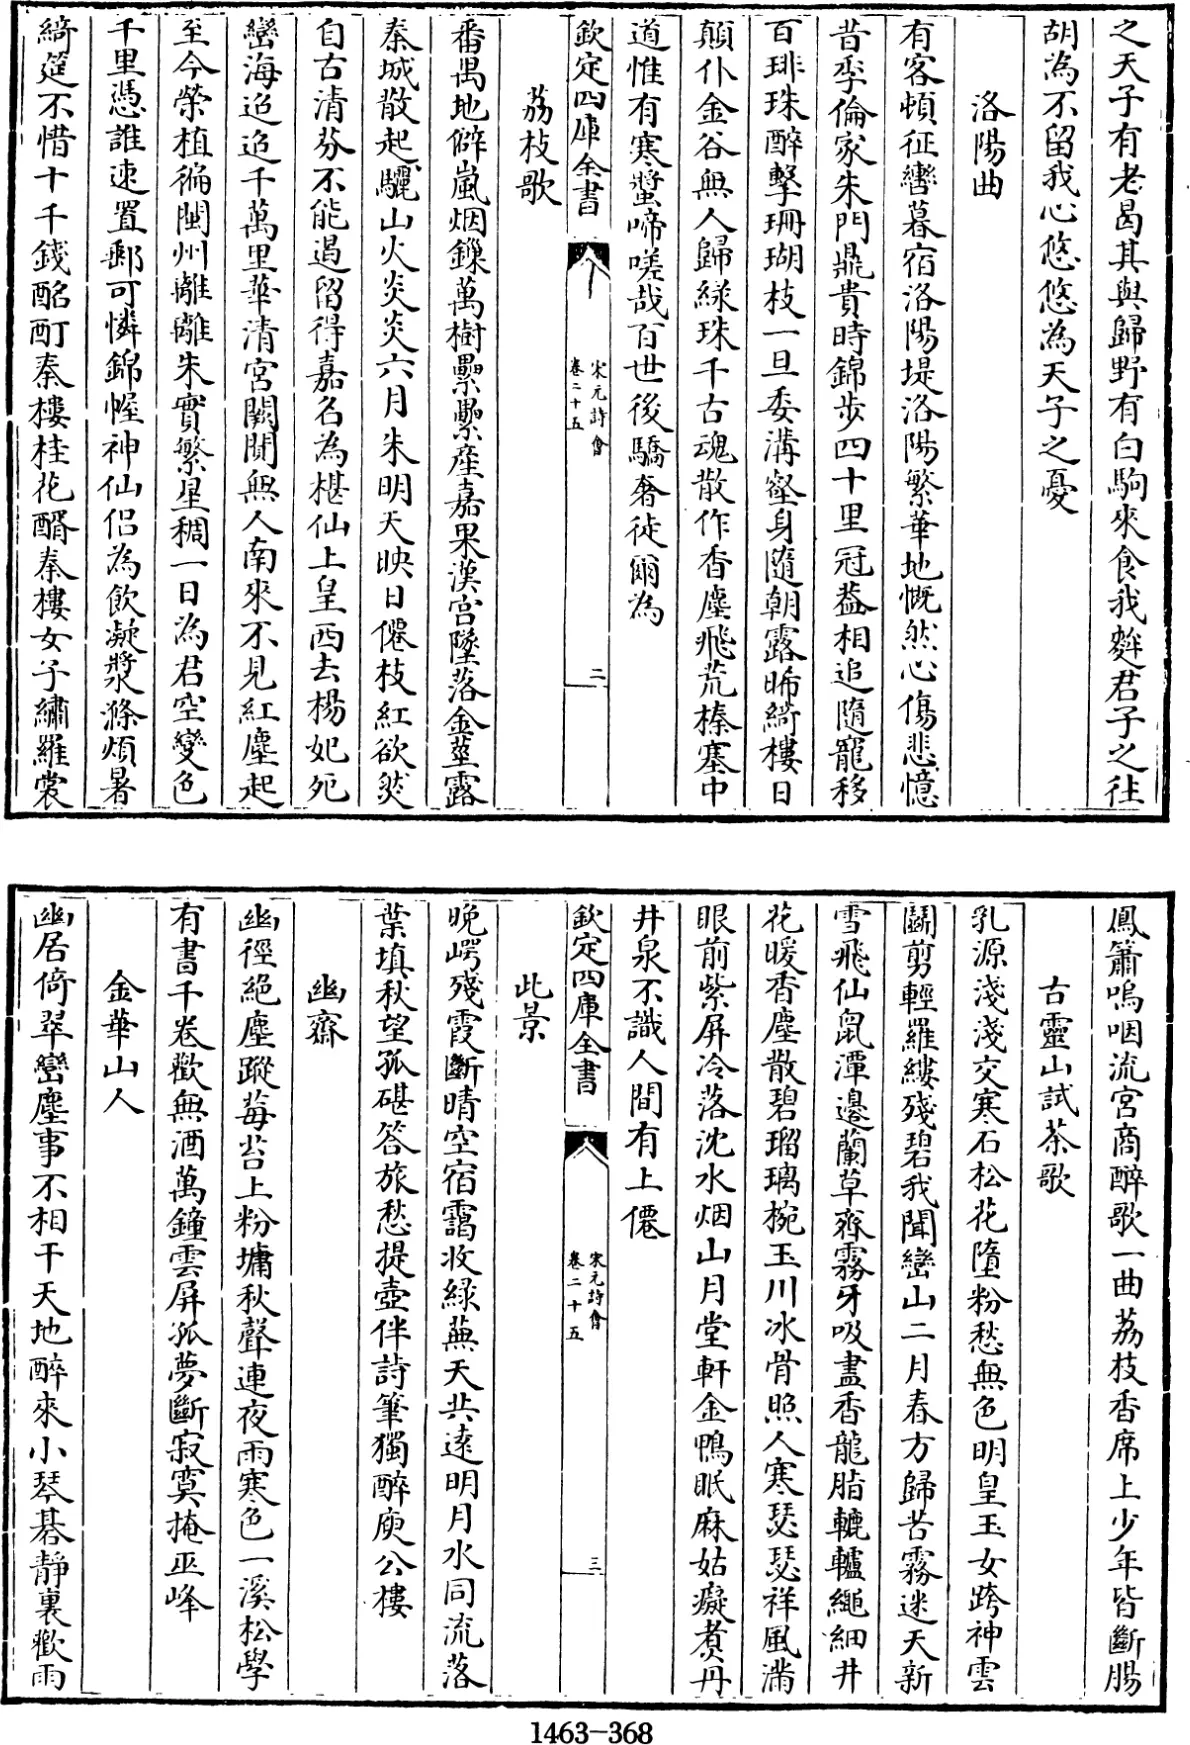 之天子有老曷其與歸野有白駒來食我麰君子之往
胡為不留我心悠悠為天子之憂
洛陽曲
有客頓征轡暮宿洛陽堤洛陽繁華地慨然心傷悲憶
昔季倫家朱門鼎貴時錦步四十里冠葢相追隨寵移
百琲珠醉擊珊瑚枝一旦委溝壑身隨朝露晞綺樓日
顛仆金谷無人歸緑珠千古魂散作香塵飛荒榛塞中
道惟有寒螿啼嗟哉百世後驕奢徒爾為
欽定四庫全書
宋元詩會
卷二十五
二
荔枝歌
番禺地僻嵐烟鏁萬樹纍纍產嘉果漢宫墜落金莖露
秦城散起驪山火炎炎六月朱明天映日僊枝紅欲然
自古清芬不能遏留得嘉名為椹仙上皇西去楊妃死
巒海迢迢千萬里華清宮闕閴無人南來不見紅塵起
至今榮植徧閩州離離朱實繁星稠一日為君空變色
千里憑誰速置郵可憐錦幄神仙侣為飲凝漿滌煩暑
綺筵不惜十千錢酩酊秦樓桂花醑秦樓女子繡羅裳
鳳簫嗚咽流宮商醉歌一曲荔枝香席上少年皆斷腸
古靈山試茶歌
乳源淺淺交寒石松花墮粉愁無色明皇玉女跨神雲
鬭剪輕羅縷殘碧我聞巒山二月春方歸苦霧迷天新
雪飛仙鼠潭邊蘭草齊霧牙吸盡香龍脂轆轤繩細井
花暖香塵散碧瑠璃椀玉川冰骨照人寒瑟瑟祥風滿
眼前紫屏冷落沈水烟山月堂軒金鴨眠麻姑癡煮丹
井泉不識人間有上僊
欽定四庫全書
宋元詩會
卷二十五
三
此景
晚崿殘霞斷晴空宿靄收緑蕪天共遠明月水同流落
葉填秋望孤碪答旅愁提壺伴詩筆獨醉庾公樓
幽齋
幽徑絕塵蹤莓苔上粉墉秋聲連夜雨寒色一溪松學
有書千卷歡無酒萬鐘雲屏孤夢斷寂寞掩巫峰
金華山人
幽居倚翠巒塵事不相干天地醉來小琴碁静裏歡雨
1463-368